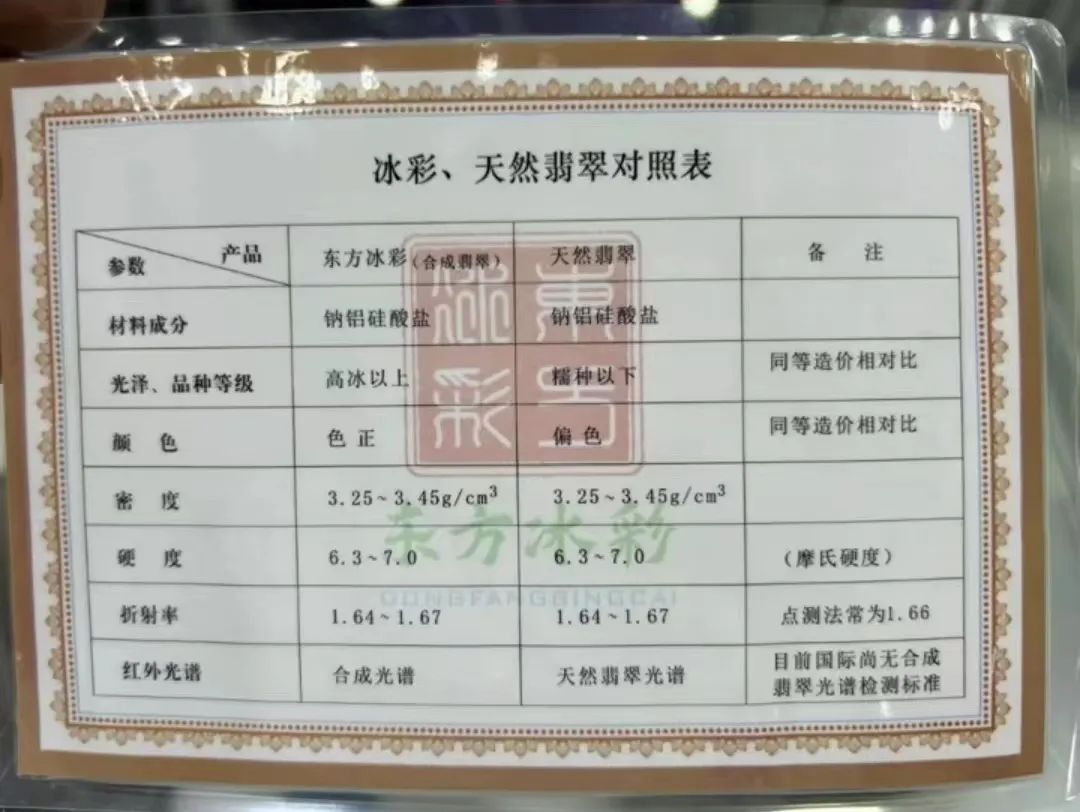 冰彩、天然翡翠对照表
产品 参数 东方冰彩(合成翡翠) 天然翡翠 备 注
材料成分 钠铝硅酸盐 钠铝硅酸盐
光泽、品种等级 高冰以上 糯种以下 同等造价相对比
颜 色 色正 偏色 同等造价相对比
密 度 3.25~3.45g/cm³ 3.25~3.45g/cm³
硬 度 6.3~7.0 6.3~7.0 (摩氏硬度)
折射率 1.64~1.67 1.64~1.67 点测法常为1.66
红外光谱 合成光谱 天然翡翠光谱 目前国际尚无合成
翡翠光谱检测标准
東方冰彩
东方冰彩
DONGFANGBINGCAI